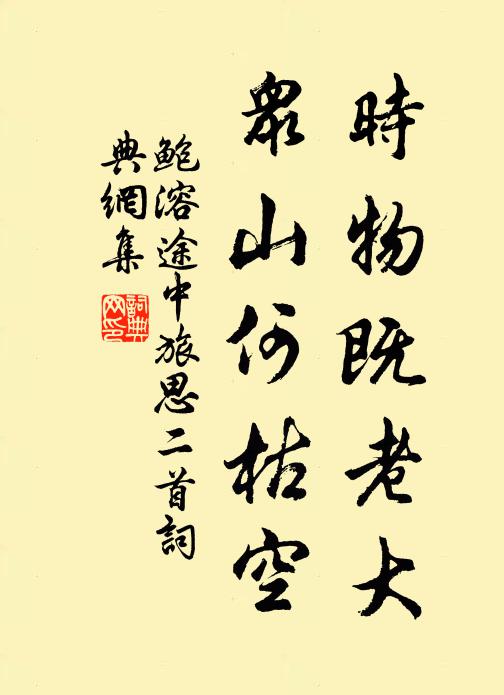 時物既老大
眾山何枯空
鲍溶途中旅思二首詞
典網集
詞典
网印